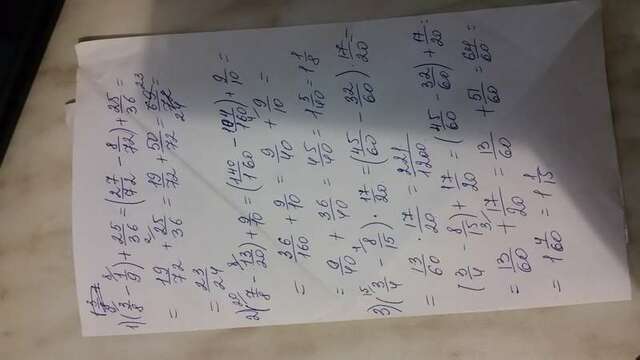 1) (3/8 - 1/9) + 25/36 = (27/72 - 8/72) + 25/36 =
= 19/72 + 25/36 = 19/72 + 50/72 = 69/72 =
= 23/24
2) (7/8 - 13/20) + 9/10 = (140/160 - 104/160) + 9/10 =
= 36/160 + 9/10 = 9/40 + 9/10 =
= 9/40 + 36/40 = 45/40 = 1 5/40 = 1 1/8
3) (3/4 - 8/15) · 17/20 = (45/60 - 32/60) 17/20
= 13/60 · 17/20 = 221/1200
(3/4 - 8/15) + 17/20 = (45/60 - 32/60) + 17/20 =
= 13/60 + 17/20 = 13/60 + 51/60 = 64/60
= 1 4/60 = 1 1/15